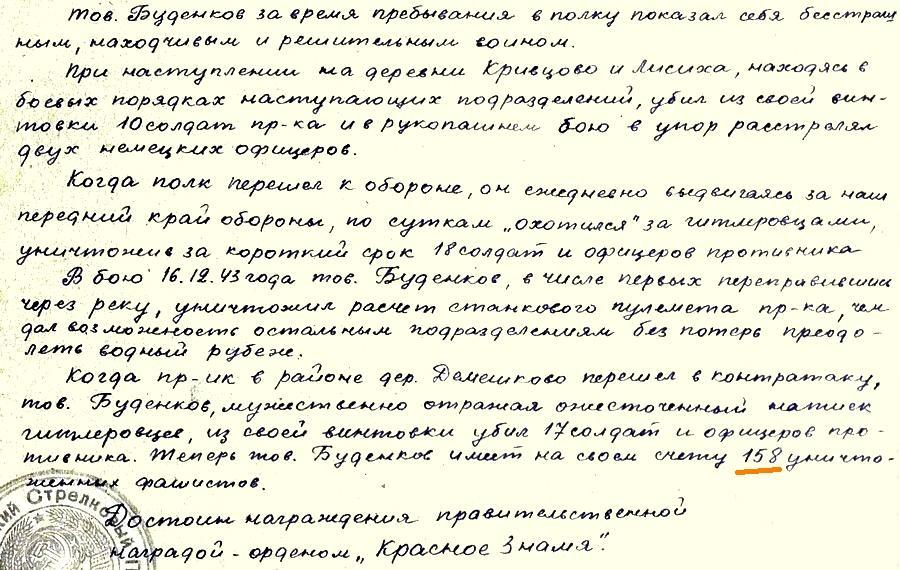 тов. Буденков за время пребывания в полку показал себя бесстраш
ным, находчивым и решительным воином.
При наступлении на деревни Кривцово и Лисиха, находясь в
боевых порядках наступающих подразделений, убил из своей вин-
товки 10 солдат пр-ка и в рукопашнем бою в упор расстрелял
двух немецких офицеров.
Когда полк перешел к обороне, он ежедневно выдвигаясь за наш
передний край обороны, по суткам „охотился" за гитлеровцами,
уничтожив за короткий срок 18 солдат и офицеров противника
В бою 16.12.43 года тов. Буденков, в числе первых переправившись
через реку, уничтожил расчет станкового пулемета пр-ка, чем
дал возможность остальным подразделениям без потерь преодо-
леть водный рубеж.
Когда пр-ик в районе дер. Демешково перешел в контратаку,
тов. Буденков, мужественно отражая ожесточенный натиск
гитлеровцев, из своей винтовки убил 17 солдат и офицеров про-
тивника. Теперь тов. Буденков имеет на своем счету 158 уничто-
женных фашистов.
Достоин награждения правительственной
наградой - орденом „Красное Знамя".
Стрелковый